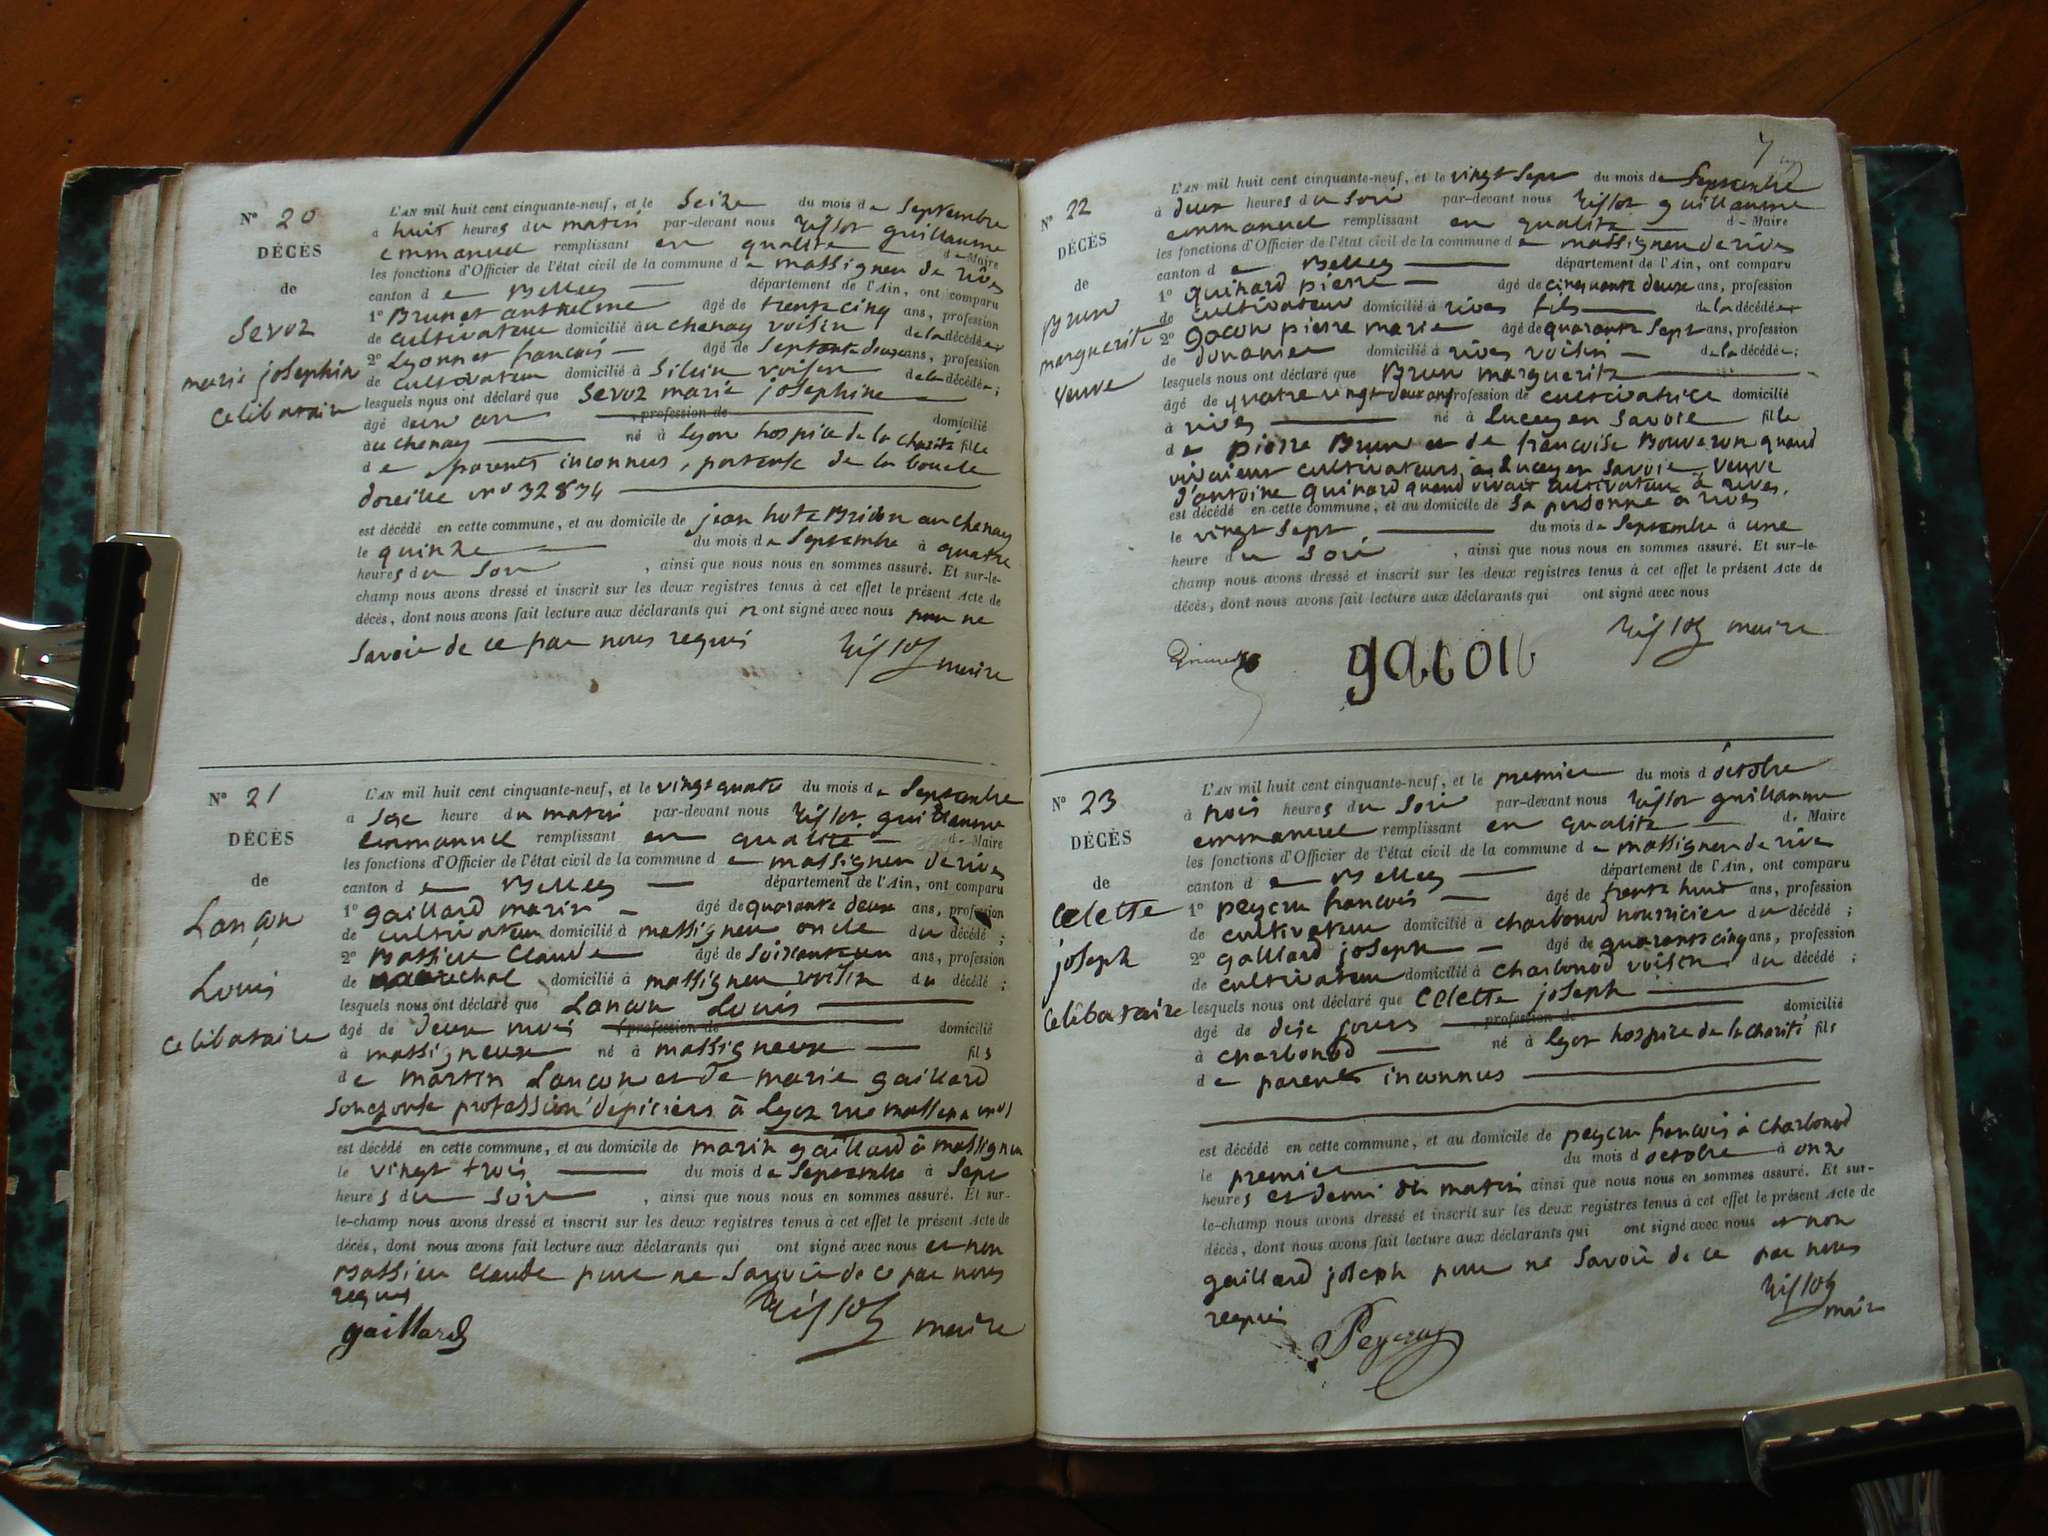 N° 20
DÉCÈS
de
Sevoz
marie josephine
celibataire
L'AN mil huit cent cinquante-neuf, et le seize du mois de septembre
à huit heures du matin par-devant nous guillaume
emmanuel remplissant en qualité de Maire
les fonctions d'Officier de l'état civil de la commune de massigneu de rives
canton de Belley département de l'Ain, ont comparu
1° Brunet anthelme âgé de trente cinq ans, profession
de cultivateur domicilié au chenay voisin de la décédée
2° Lyonnet francois âgé de septante deux ans, profession
de cultivateur domicilié à voisin de la décédée;
lesquels nous ont déclaré que Sevoz marie josephine
âgé d'un an , profession de domicilié
au chenay né à Lyon hospice de la charité fille
de parents inconnus, portante de la boucle
doreille n° 32874
est décédé en cette commune, et au domicile de jean au chenay
le quinze du mois de septembre à quatre
heures du soir , ainsi que nous nous en sommes assuré. Et sur-le-
champ nous avons dressé et inscrit sur les deux registres tenus à cet effet le présent Acte de
décès, dont nous avons fait lecture aux déclarants qui n ont signé avec nous pour ne
savoir de ce par nous requis
maire
N° 21
DÉCÈS
de
Lançon
Louis
celibataire
L'AN mil huit cent cinquante-neuf, et le vingt quatre du mois de septembre
à heure du matin par-devant nous guillaume
emmanuel remplissant en qualité de Maire
les fonctions d'Officier de l'état civil de la commune de massigneu de rives
canton de Belley département de l'Ain, ont comparu
1° gaillard marin âgé de quarante deux ans, profession
de cultivateur domicilié à massigneu oncle du décédé;
2° Mathieu Claude âgé de soixante un ans, profession
de marechal domicilié à massigneu voisin du décédé;
lesquels nous ont déclaré que Lancon Louis
âgé de deux mois , profession de domicilié
à massigneux né à massigneux fils
de martin Lancon et de marie gaillard
profession d'epiciers à Lyon rue massena n° 1
est décédé en cette commune, et au domicile de marin gaillard à massigneu
le vingt trois du mois de septembre à sept
heures du soir , ainsi que nous nous en sommes assuré. Et sur-
le-champ nous avons dressé et inscrit sur les deux registres tenus à cet effet le présent Acte de
décès, dont nous avons fait lecture aux déclarants qui ont signé avec nous et non
Mathieu Claude pour ne savoir de ce par nous
requis
gaillard
maire
7
N° 22
DÉCÈS
de
Brun
marguerite
veuve
L'AN mil huit cent cinquante-neuf, et le vingt sept du mois de septembre
à deux heures du soir par-devant nous guillaume
emmanuel remplissant en qualité de Maire
les fonctions d'Officier de l'état civil de la commune de massigneu de rives
canton de Belley département de l'Ain, ont comparu
1° quinard pierre âgé de cinquante deux ans, profession
de cultivateur domicilié à rives fils de la décédée
2° gacon pierre marie âgé de quarante sept ans, profession
de douanier domicilié à rives voisin de la décédée;
lesquels nous ont déclaré que Brun marguerite
âgé de quatre vingt deux ans profession de cultivatrice domicilié
à rives né à Lucey en savoie fille
de pierre Brun et de francoise Bouveron quand
vivaient cultivateurs à Lucey en savoie veuve
d'antoine quinard quand vivait cultivateur à rives.
est décédé en cette commune, et au domicile de sa personne à rives
le vingt sept du mois de septembre à une
heure du soir , ainsi que nous nous en sommes assuré. Et sur-le-
champ nous avons dressé et inscrit sur les deux registres tenus à cet effet le présent Acte de
décès, dont nous avons fait lecture aux déclarants qui ont signé avec nous
gacon
maire
N° 23
DÉCÈS
de
Celette
joseph
celibataire
L'AN mil huit cent cinquante-neuf, et le premier du mois d'octobre
à trois heures du soir par-devant nous guillaume
emmanuel remplissant en qualité de Maire
les fonctions d'Officier de l'état civil de la commune de massigneu de rives
canton de Belley département de l'Ain, ont comparu
1° peycru francois âgé de trente huit ans, profession
de cultivateur domicilié à charbonod nourricier du décédé;
2° gaillard joseph âgé de quarante cinq ans, profession
de cultivateur domicilié à charbonod voisin du décédé;
lesquels nous ont déclaré que Celette joseph
âgé de dix jours , profession de domicilié
à charbonod né à Lyon hospice de la charité fils
de parents inconnus
est décédé en cette commune, et au domicile de peycru francois à charbonod
le premier du mois d'octobre à onze
heures et demi du matin ainsi que nous nous en sommes assuré. Et sur-
le-champ nous avons dressé et inscrit sur les deux registres tenus à cet effet le présent Acte de
décès, dont nous avons fait lecture aux déclarants qui ont signé avec nous et non
gaillard joseph pour ne savoir de ce par nous
requis
Peycru
maire